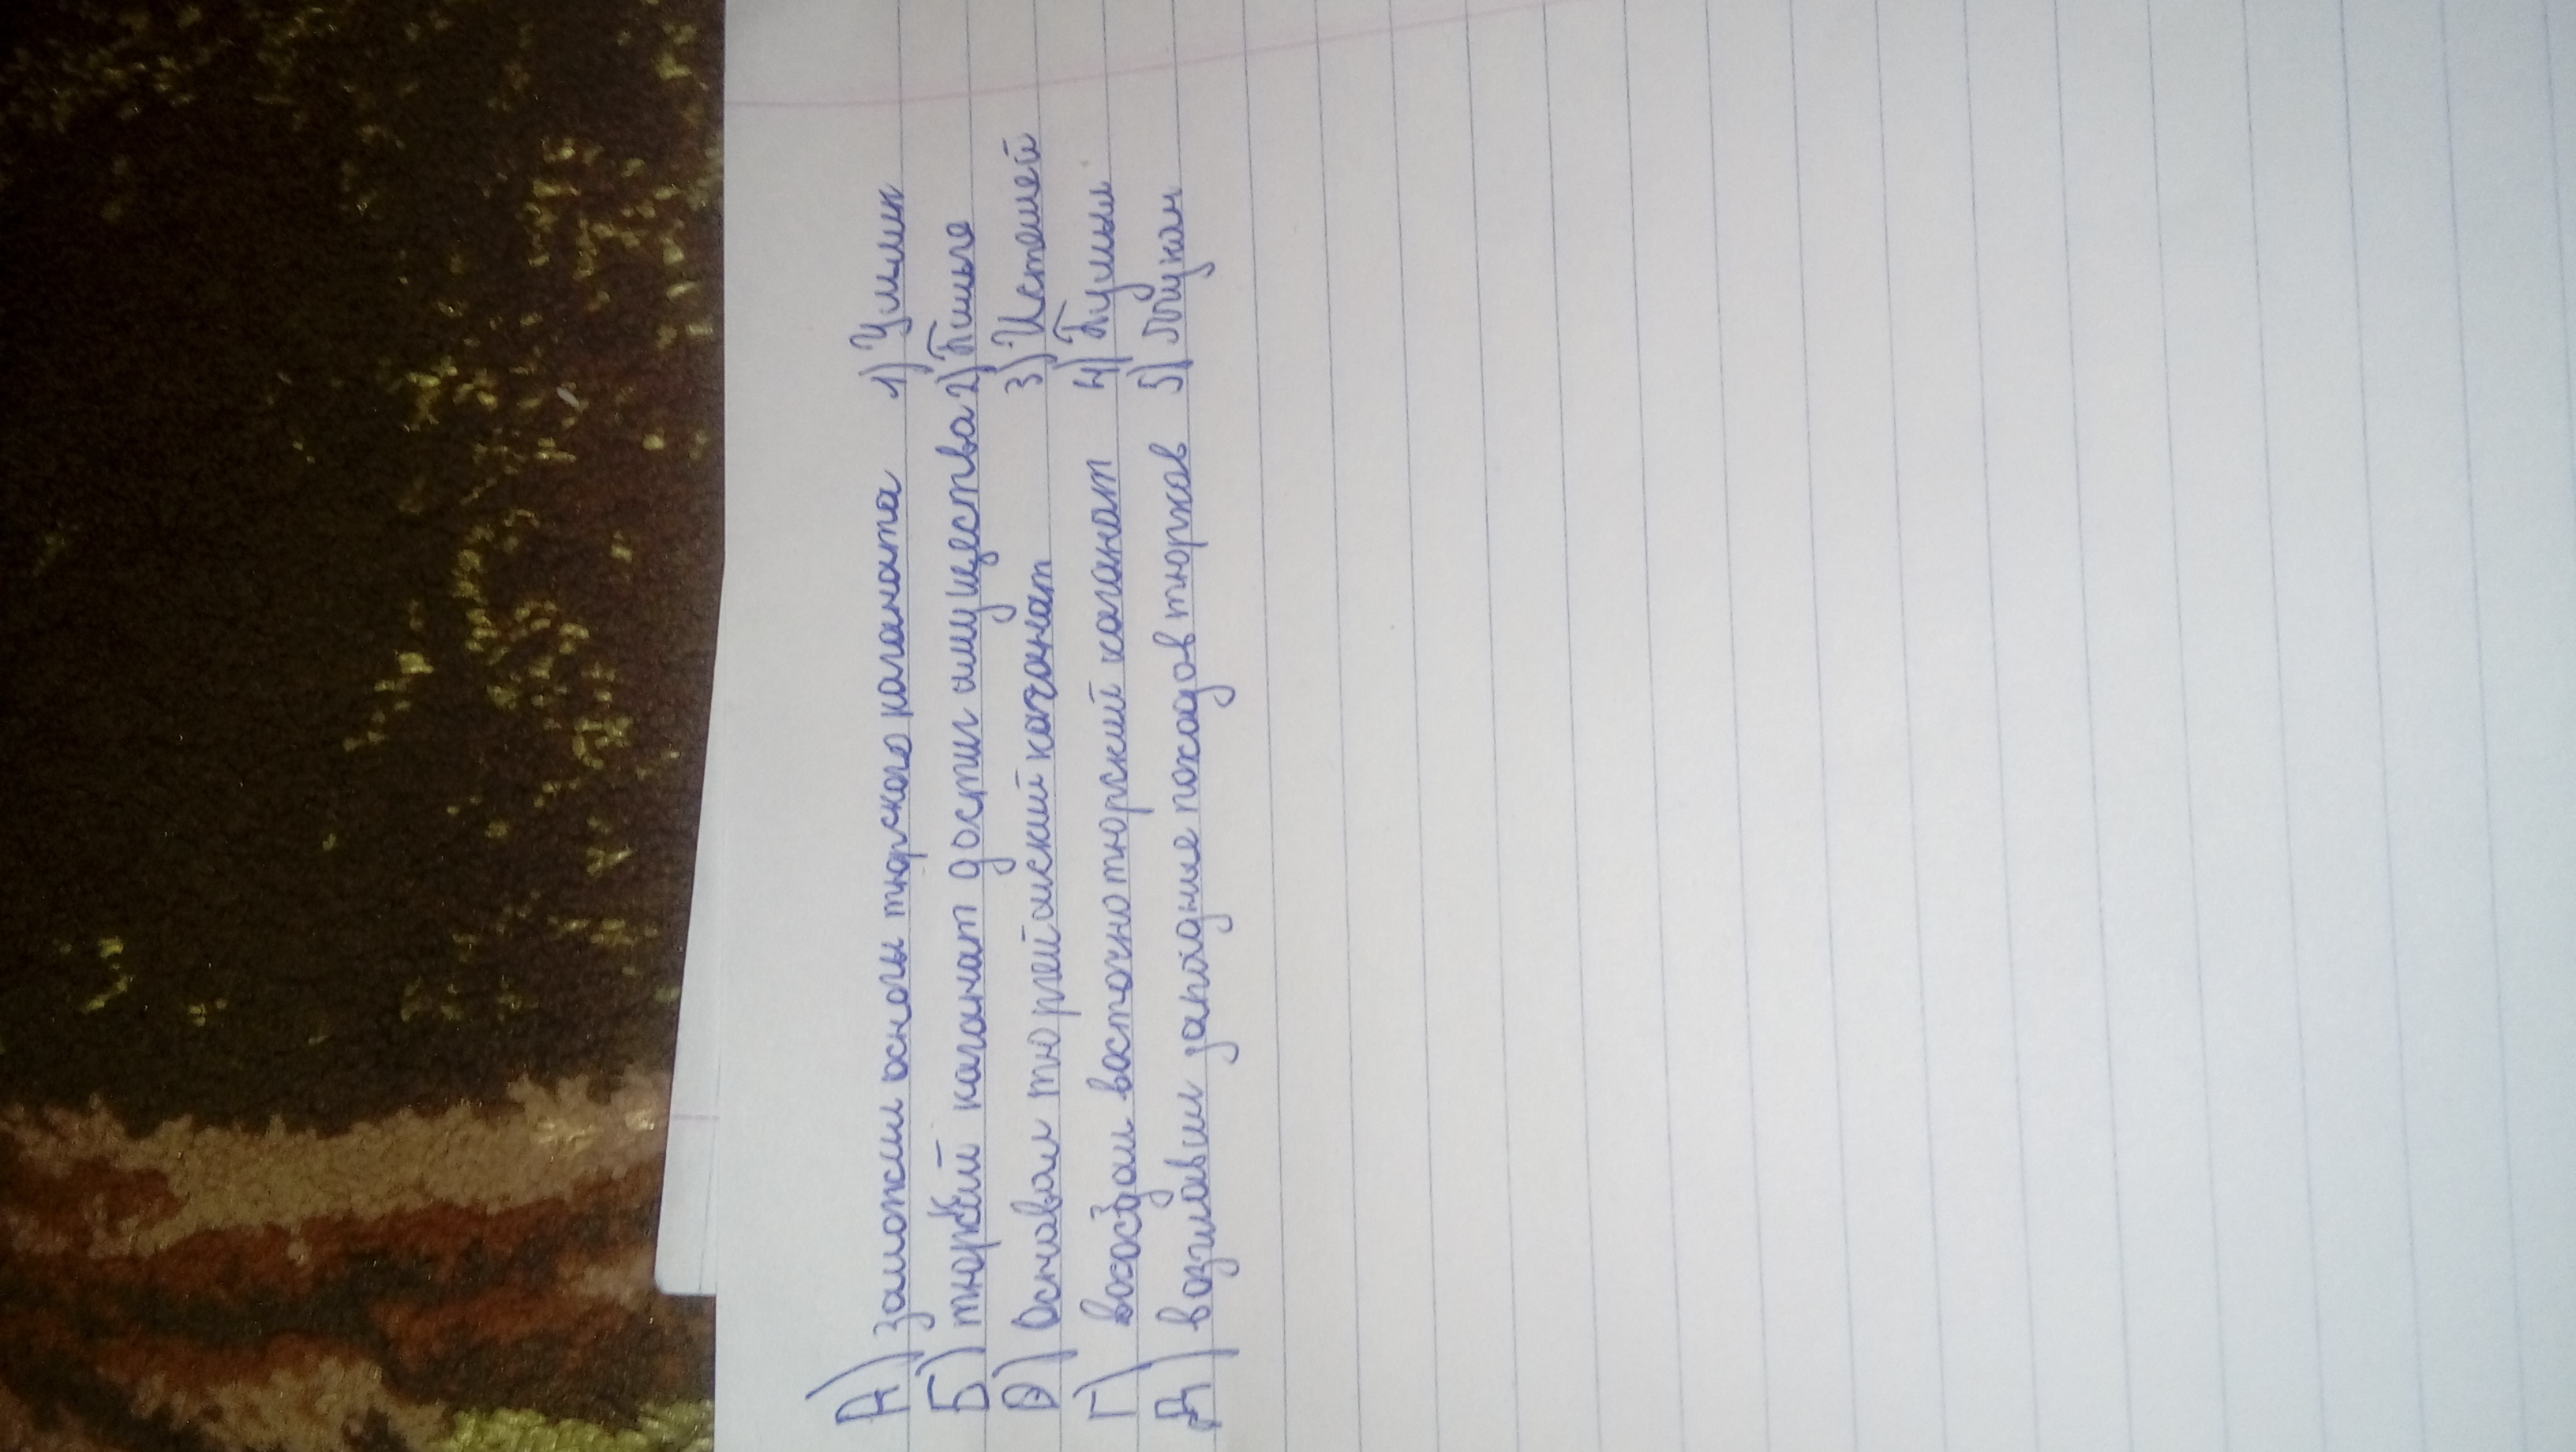 А) заложил основы тюрского каганата 1) Улилик
Б) тюркский каганат достиг имущества 2) Пильге
В) Основал тюргешский каганат 3) Истемей
Г) воссоздал восточно тюрский каганат 4) Булын
Д) возглавил западные походов тюрков 5) Мукан